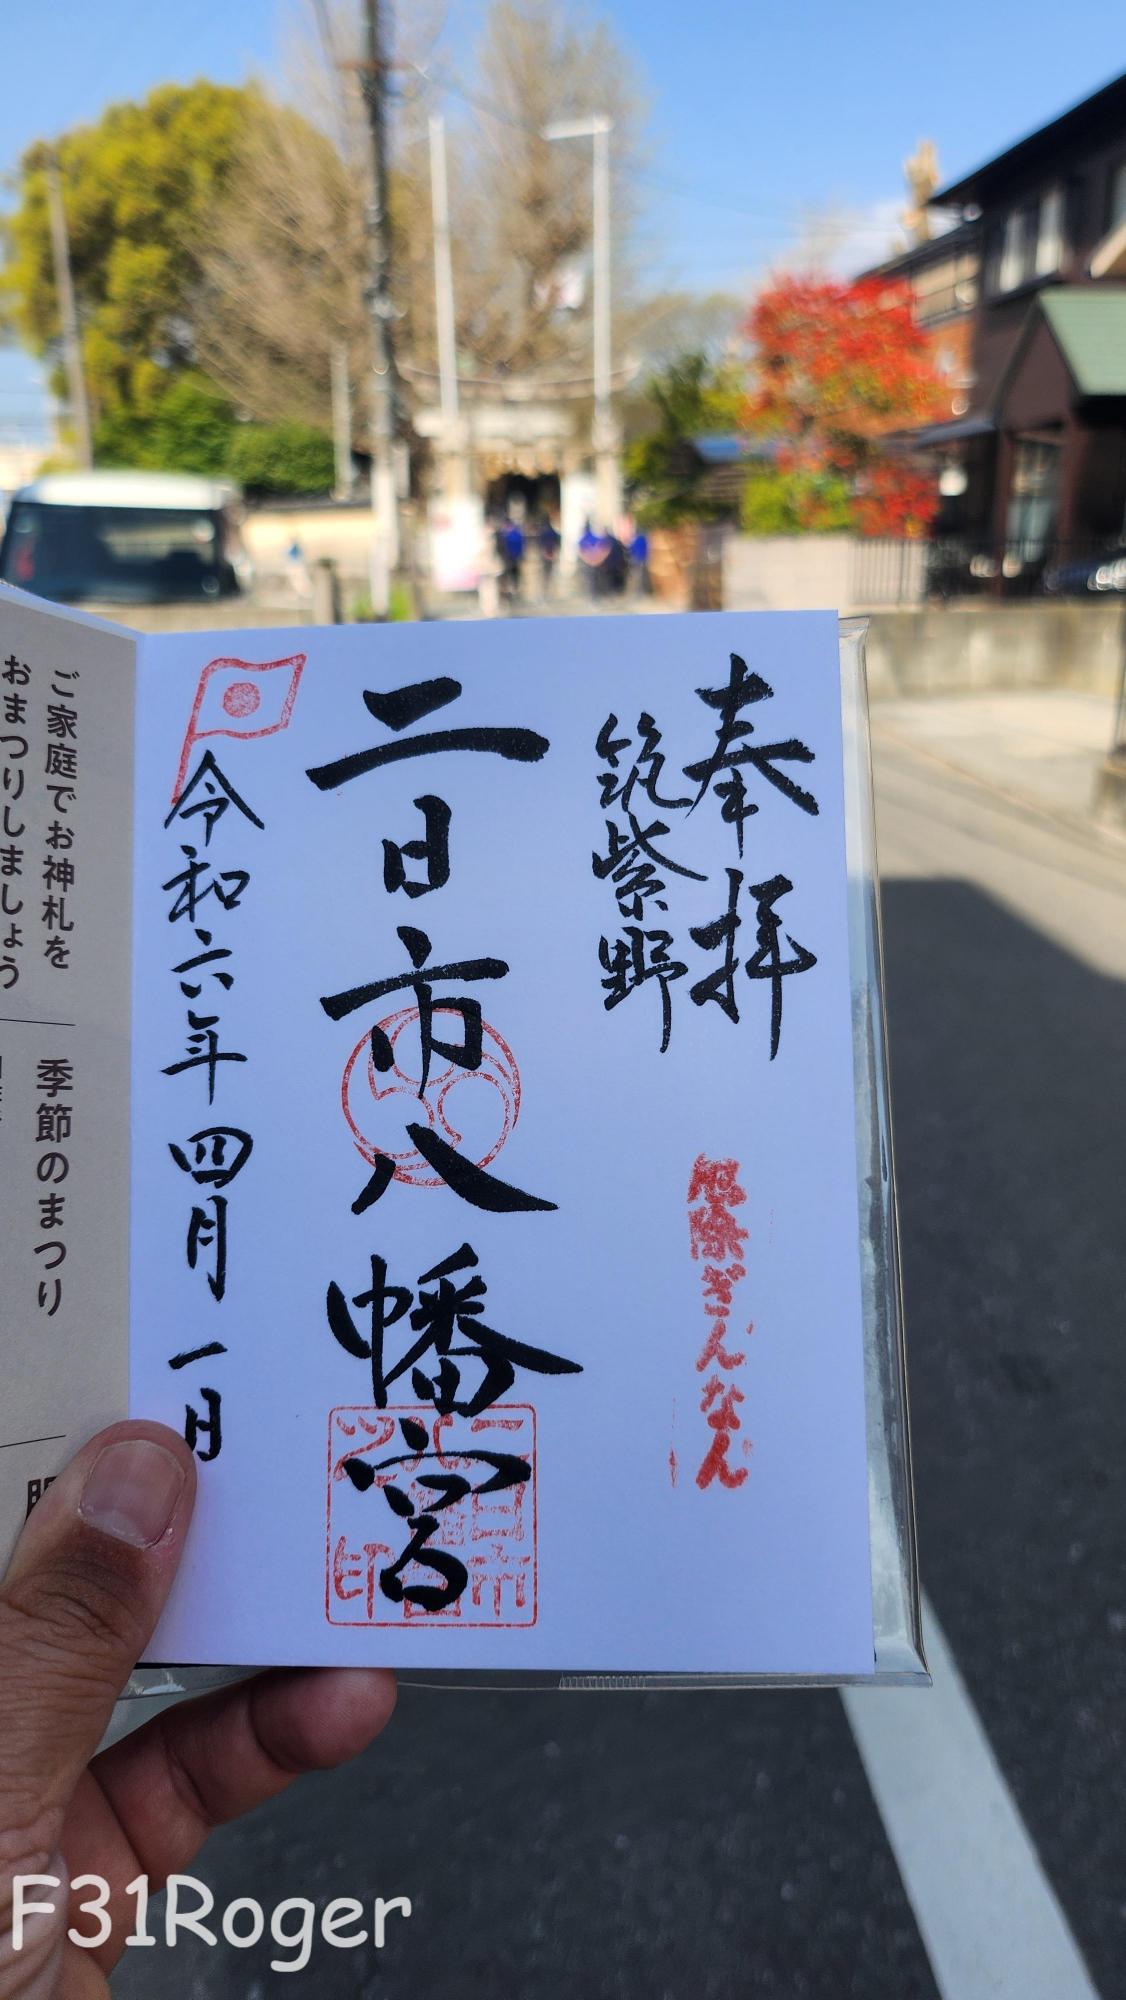 奉拝
筑紫野
厄除ぎんなん
二日市八幡宮
令和六年四月一日
ご家庭でお神札を
おまつりしましょう
季節のまつり
F31Roger